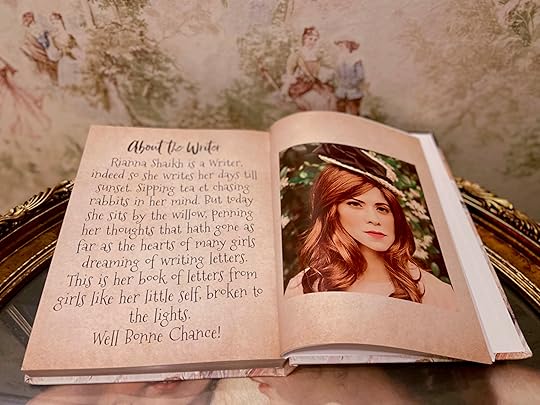 About the Writer
Rianna Shaikh is a Writer,
indeed so she writes her days till
sunset. Sipping tea et chasing
rabbits in her mind. But today
she sits by the willow, penning
her thoughts that hath gone as
far as the hearts of many girls
dreaming of writing letters.
This is her book of letters from
girls like her little self, broken to
the lights.
Well Bonne Chance!